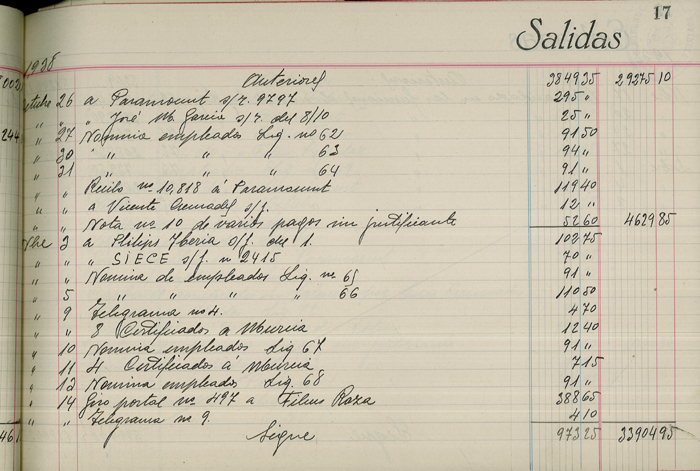 17
Salidas
1935
Anteriores 384935 2927510
Octubre 26 a Paramount s/r. 9797 295 "
" " " José M. Garcia s/r. del 8/10 25 "
244 " 27 Nomina empleados Liq. nº 62 9150
" 30 " " " 63 94 "
" 31 " " " 64 91 "
" " Recibo nº 10,818 á Paramount 11940
" " a Vicente s/f. 12 "
" " Nota nº 10 de varios pagos sin justificante 5260 462985
Nbre 2 a Philips Iberia s/f. del 1. 10375
" " " SIECE s/f. n 2415 70 "
" " Nomina de empleados Liq. nº 65 91 "
" 5 " " " " 66 11050
" 9 Telegrama nº 4. 470
" " 8 Certificados a Murcia 1240
" 10 Nomina empleados Liq 67 91 "
" 11 4 Certificados á Murcia 715
" 12 Nomina empleados Liq. 68 91 "
" 14 Giro postal nº 497 a Roza 38865
" " Telegrama nº 9. 410
461 Sigue 97325 3390495